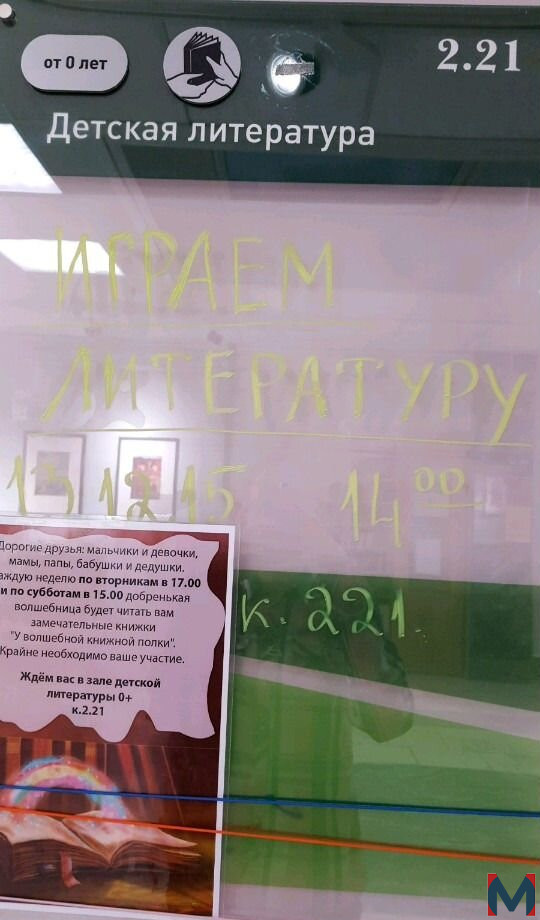 от 0 лет
2.21
Детская литература
ИГРАЕМ
ЛИТЕРАТУРУ
13 12 15 14 00
Дорогие друзья: мальчики и девочки,
мамы, папы, бабушки и дедушки.
аждую неделю по вторникам в 17.00
и по субботам в 15.00 добренькая
волшебница будет читать вам
замечательные книжки
"У волшебной книжной полки".
Крайне необходимо ваше участие.
Ждём вас в зале детской
литературы 0+
к.2.21
к. 221.
M